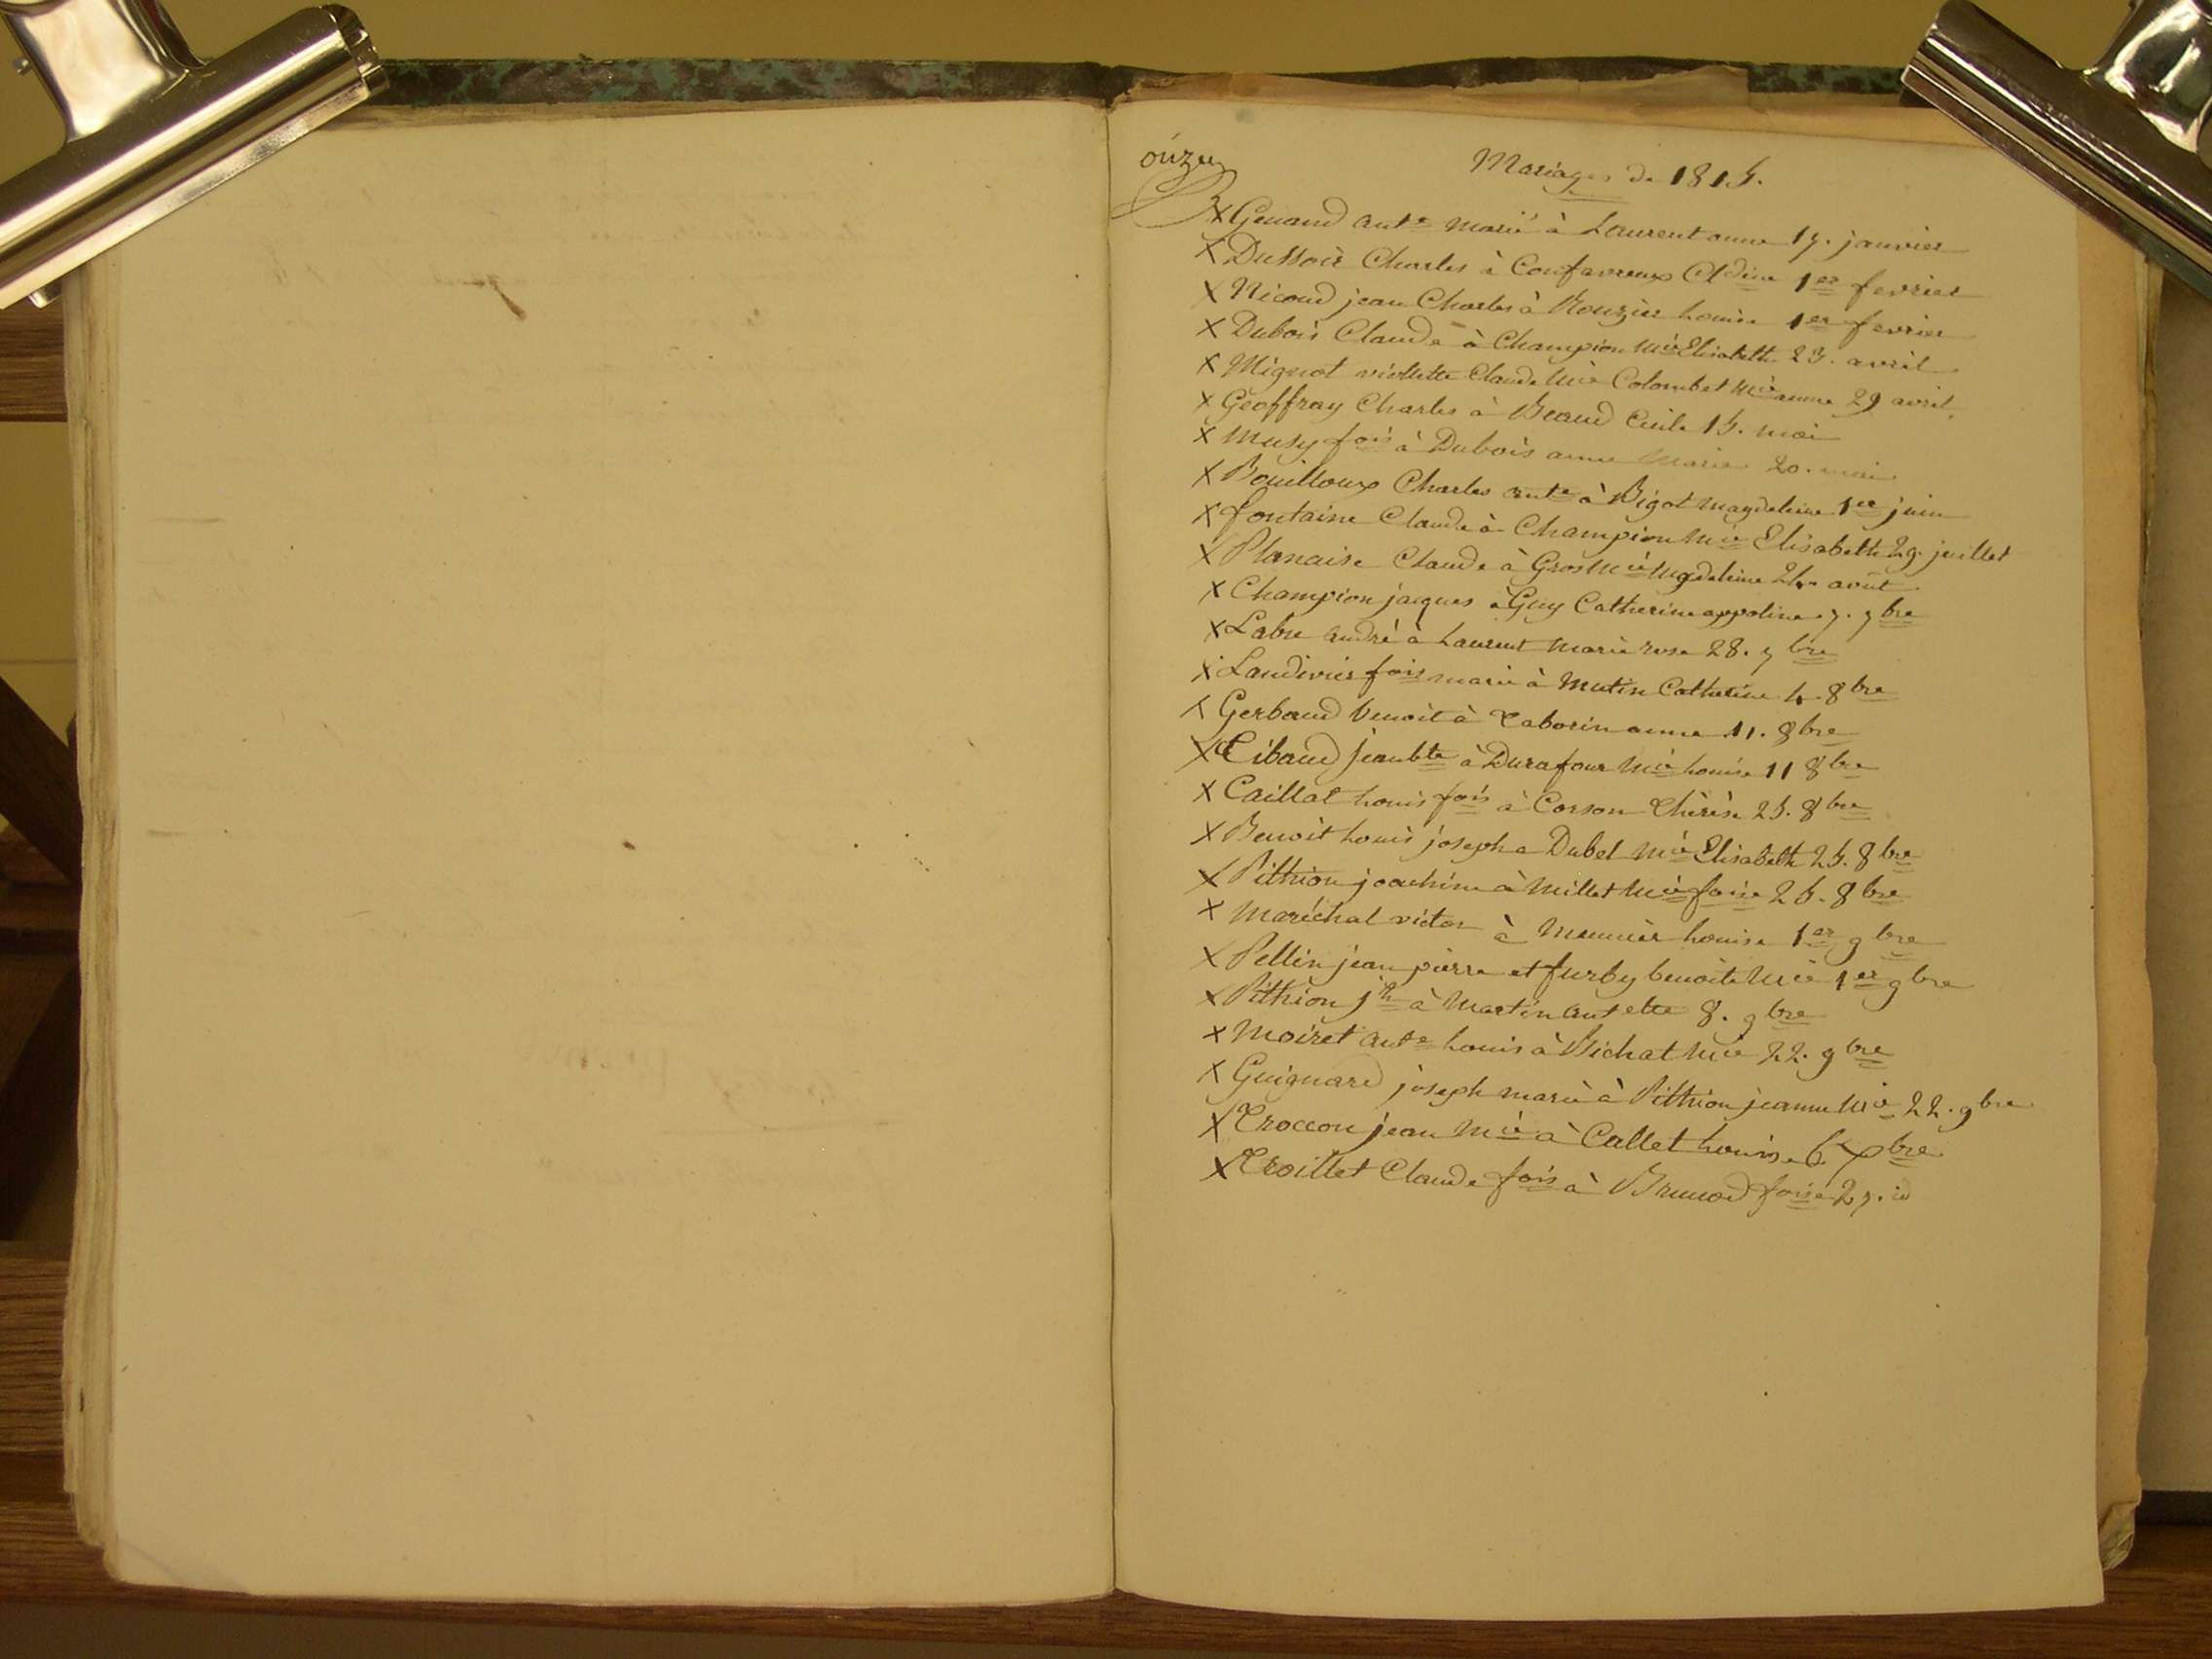 onze
Mariages de 1815.
x Genaud ant.e marié à Laurent anne 17. janvier
x Dussoir Charles à Confavreux Cldine 1er fevrier
x Nicoud jean Charles à Rouzier Louise 1er fevrier
x Dubois Claude à Champion Mie Elisabeth 25. avril
x Mignot viollette Claude Mie Colombet Mie anne 29 avril.
x Geoffray Charles à Beaud Cécile 15. mai
x Musy fois à Dubois anne Marie 20. mai
x Bouilloux Charles ante à Bigot magdeleine 1er juin
x fontaine Claude à Champion Mie Elisabeth 29. juillet
x Planaise Claude à Gros Mie Magdeleine 24. août
x Champion jacques à Guy Catherine appoline 7. 7bre
x Labre andré à Laurent marie rose 28. 7bre
x Landivier fois marie à Mutin Catherine 4. 8bre
x Gerbaud benoit à Taborin anne 11. 8bre
x Tibaud jean bte à Durafour Mie Louise 11 8bre
x Caillat Louis fois à Corson Thérèse 25. 8bre
x Benoit Louis joseph a Dubel Mie Elisabeth 25. 8bre
x Pithion joachim à Millet Mie foise 25. 8bre
x Maréchal victor à Meunier Louise 1er 9bre
x Pellin jean pierre et furby benoite Mie 1er 9bre
x Pithion jh à Martin antette 8. 9bre
x Moiret ante Louis à Bichat Mie 22. 9bre
x Guignard joseph marie à Pithion jeanne Mie 22. 9bre
x Troccon jean Mie à Callet Louise 6 Xbre
x Troillet Claude fois à Brunod foise 27. id